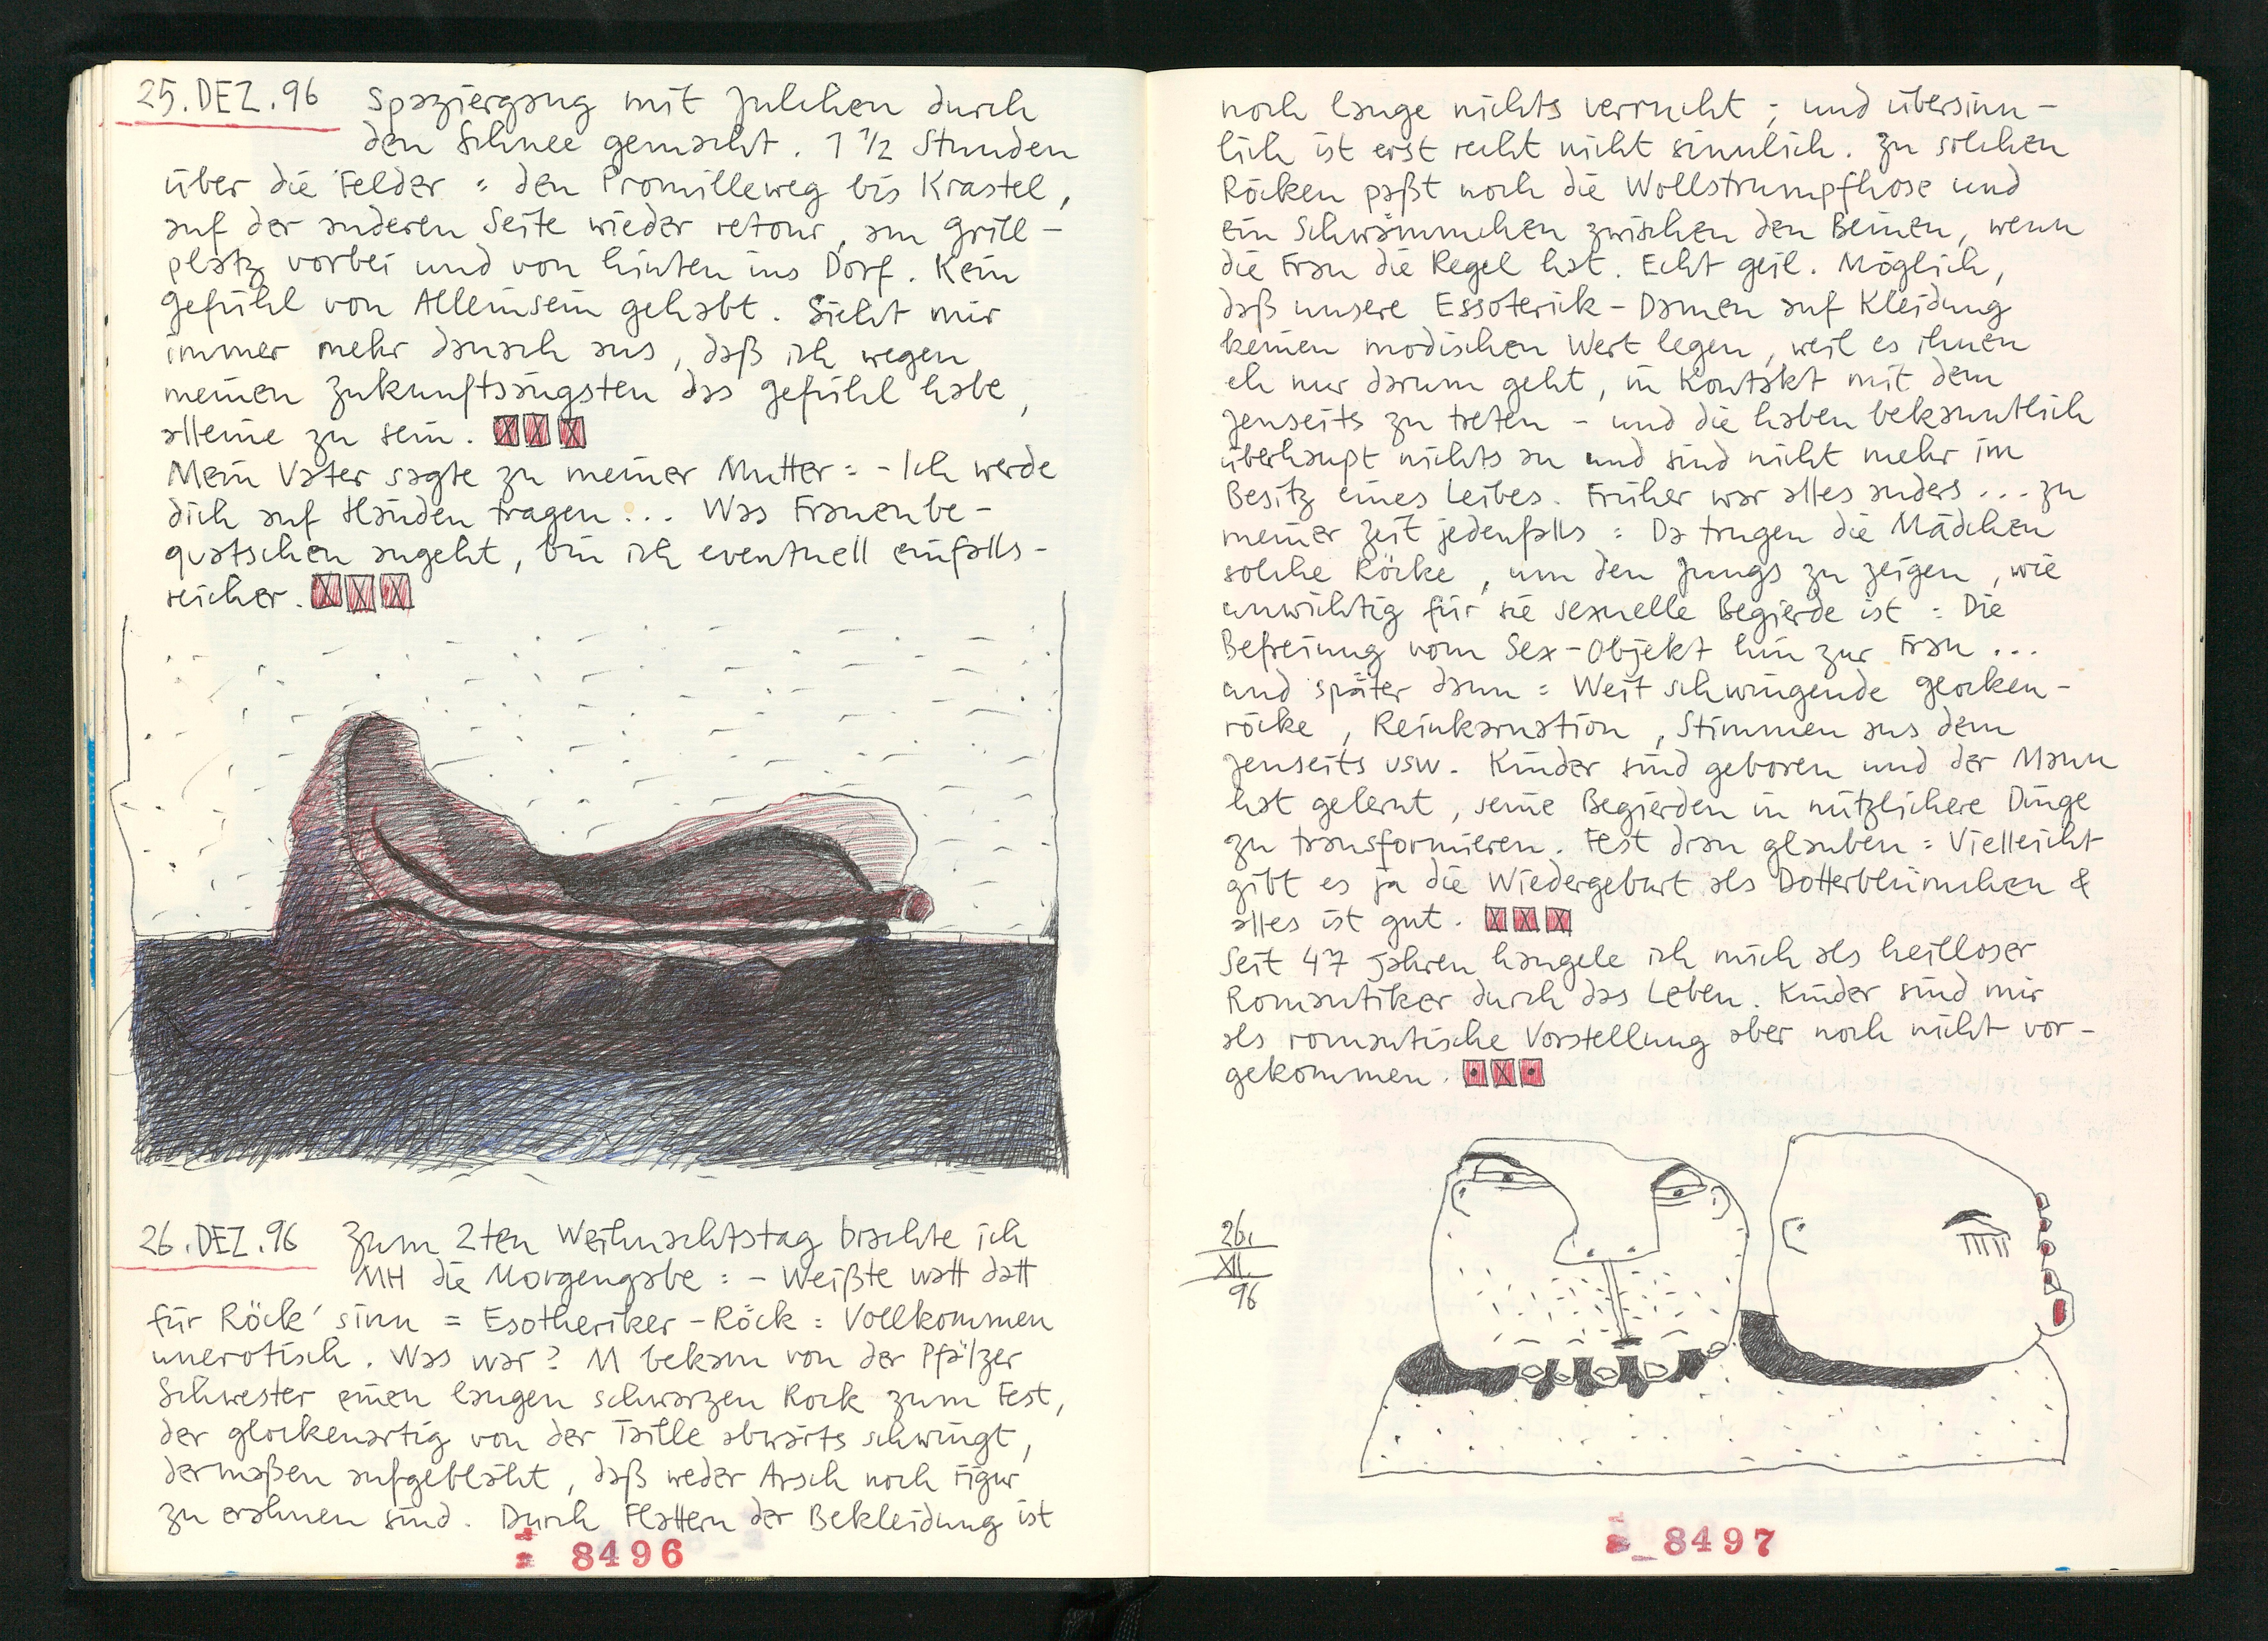 25.DEZ.96 Spaziergang mit Julchen durch
den Schnee gemacht. 1 1/2 Stunden
über die Felder : den Promilleweg bis Krastel,
auf der anderen Seite wieder retour, am Grill-
platz vorbei und von hinten ins Dorf. Kein
Gefühl von Alleinsein gehabt. Sieht mir
immer mehr danach aus, daß ich wegen
meinen Zukunftsängsten das Gefühl habe,
alleine zu sein.
Mein Vater sagte zu meiner Mutter : - Ich werde
dich auf Händen tragen!.. Was Frauenbe-
quatschen angeht, bin ich eventuell einfalls-
reicher.
26.DEZ.96 Zum 2ten Weihnachtstag brachte ich
MH die Morgengabe : - Weißte watt datt
für Röck' sinn = Esotheriker-Röck : Vollkommen
unerotisch. Was war? M bekam von der Pfälzer
Schwester einen langen schwarzen Rock zum Fest,
der glockenartig von der Taille abwärts schwingt,
dermaßen aufgebläht, daß weder Arsch noch Figur
zu erahnen sind. Durch Flattern der Bekleidung ist
8496
noch lange nichts verrucht ; und übersinn-
lich ist erst recht nicht sinnlich. Zu solchen
Röcken paßt noch die Wollstrumpfhose und
ein Schwämmchen zwischen den Beinen, wenn
die Frau die Regel hat. Echt geil. Möglich,
daß unsere Essoterik-Damen auf Kleidung
keinen modischen Wert legen, weil es ihnen
eh nur darum geht, in Kontakt mit dem
Jenseits zu treten - und die haben bekanntlich
überhaupt nichts an und sind nicht mehr im
Besitz eines Leibes. Früher war alles anders ... zu
meiner Zeit jedenfalls : Da trugen die Mädchen
solche Röcke, um den Jungs zu zeigen, wie
unwichtig für sie sexuelle Begierde ist : Die
Befreiung vom Sex-Objekt hin zur Frau ...
und später dann : Weit schwingende Glocken-
röcke, Reinkarnation, Stimmen aus dem
Jenseits usw. Kinder sind geboren und der Mann
hat gelernt, seine Begierden in nützlichere Dinge
zu transformieren. Fest dran glauben : Vielleicht
gibt es ja die Wiedergeburt als Dotterblümchen &
alles ist gut.
Seit 47 Jahren hangele ich mich als heilloser
Romantiker durch das Leben. Kinder sind mir
als romantische Vorstellung aber noch nicht vor-
gekommen.
26.
XII.
96
8497